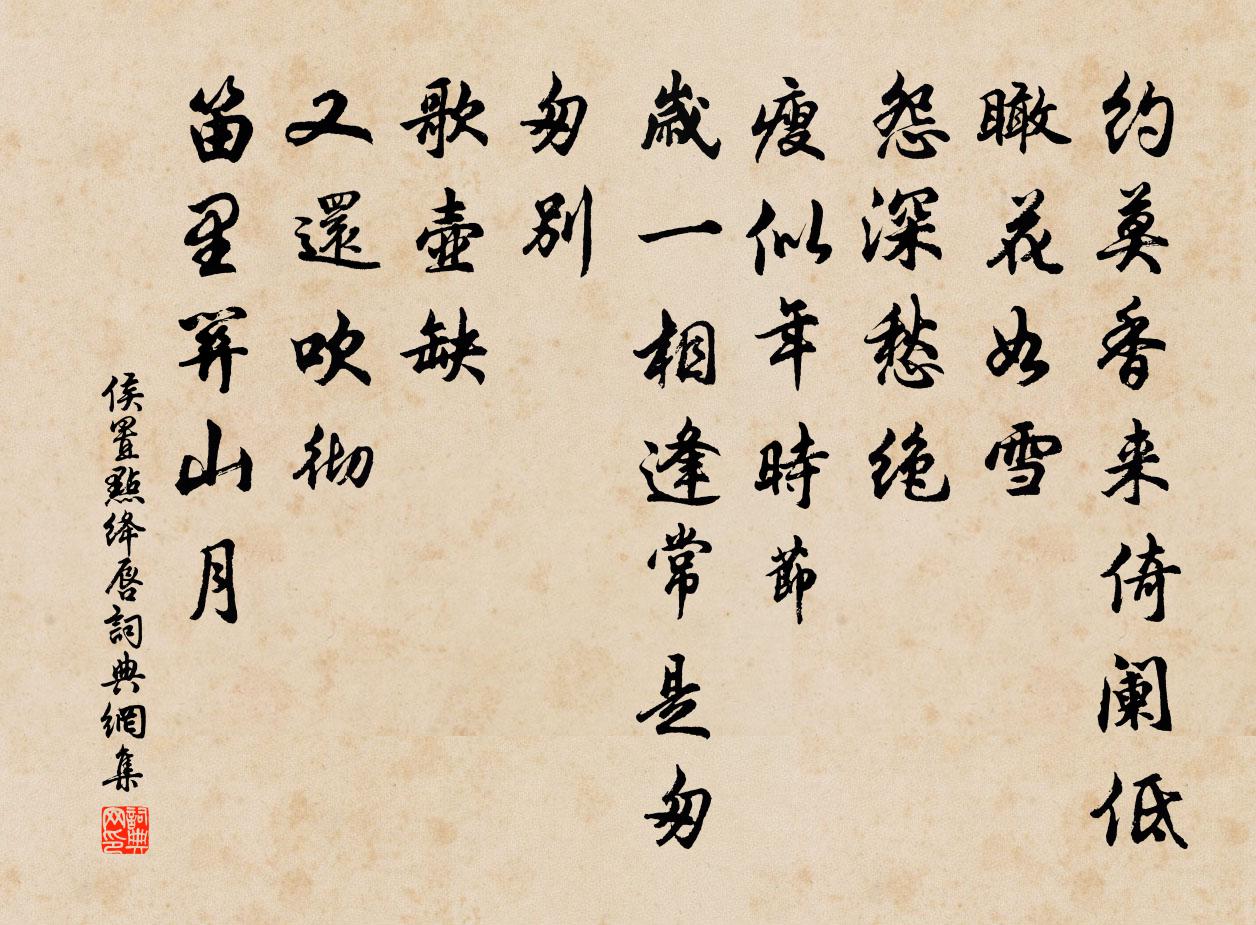 约莫香来倚阑低
瞰花如雪
怨深愁绝
瘦似年時節
歲一相逢常是匆
匆別
歌壺缺
又還吹彻
笛里关山月
侯置點绛唇詞典網集
詞典网印